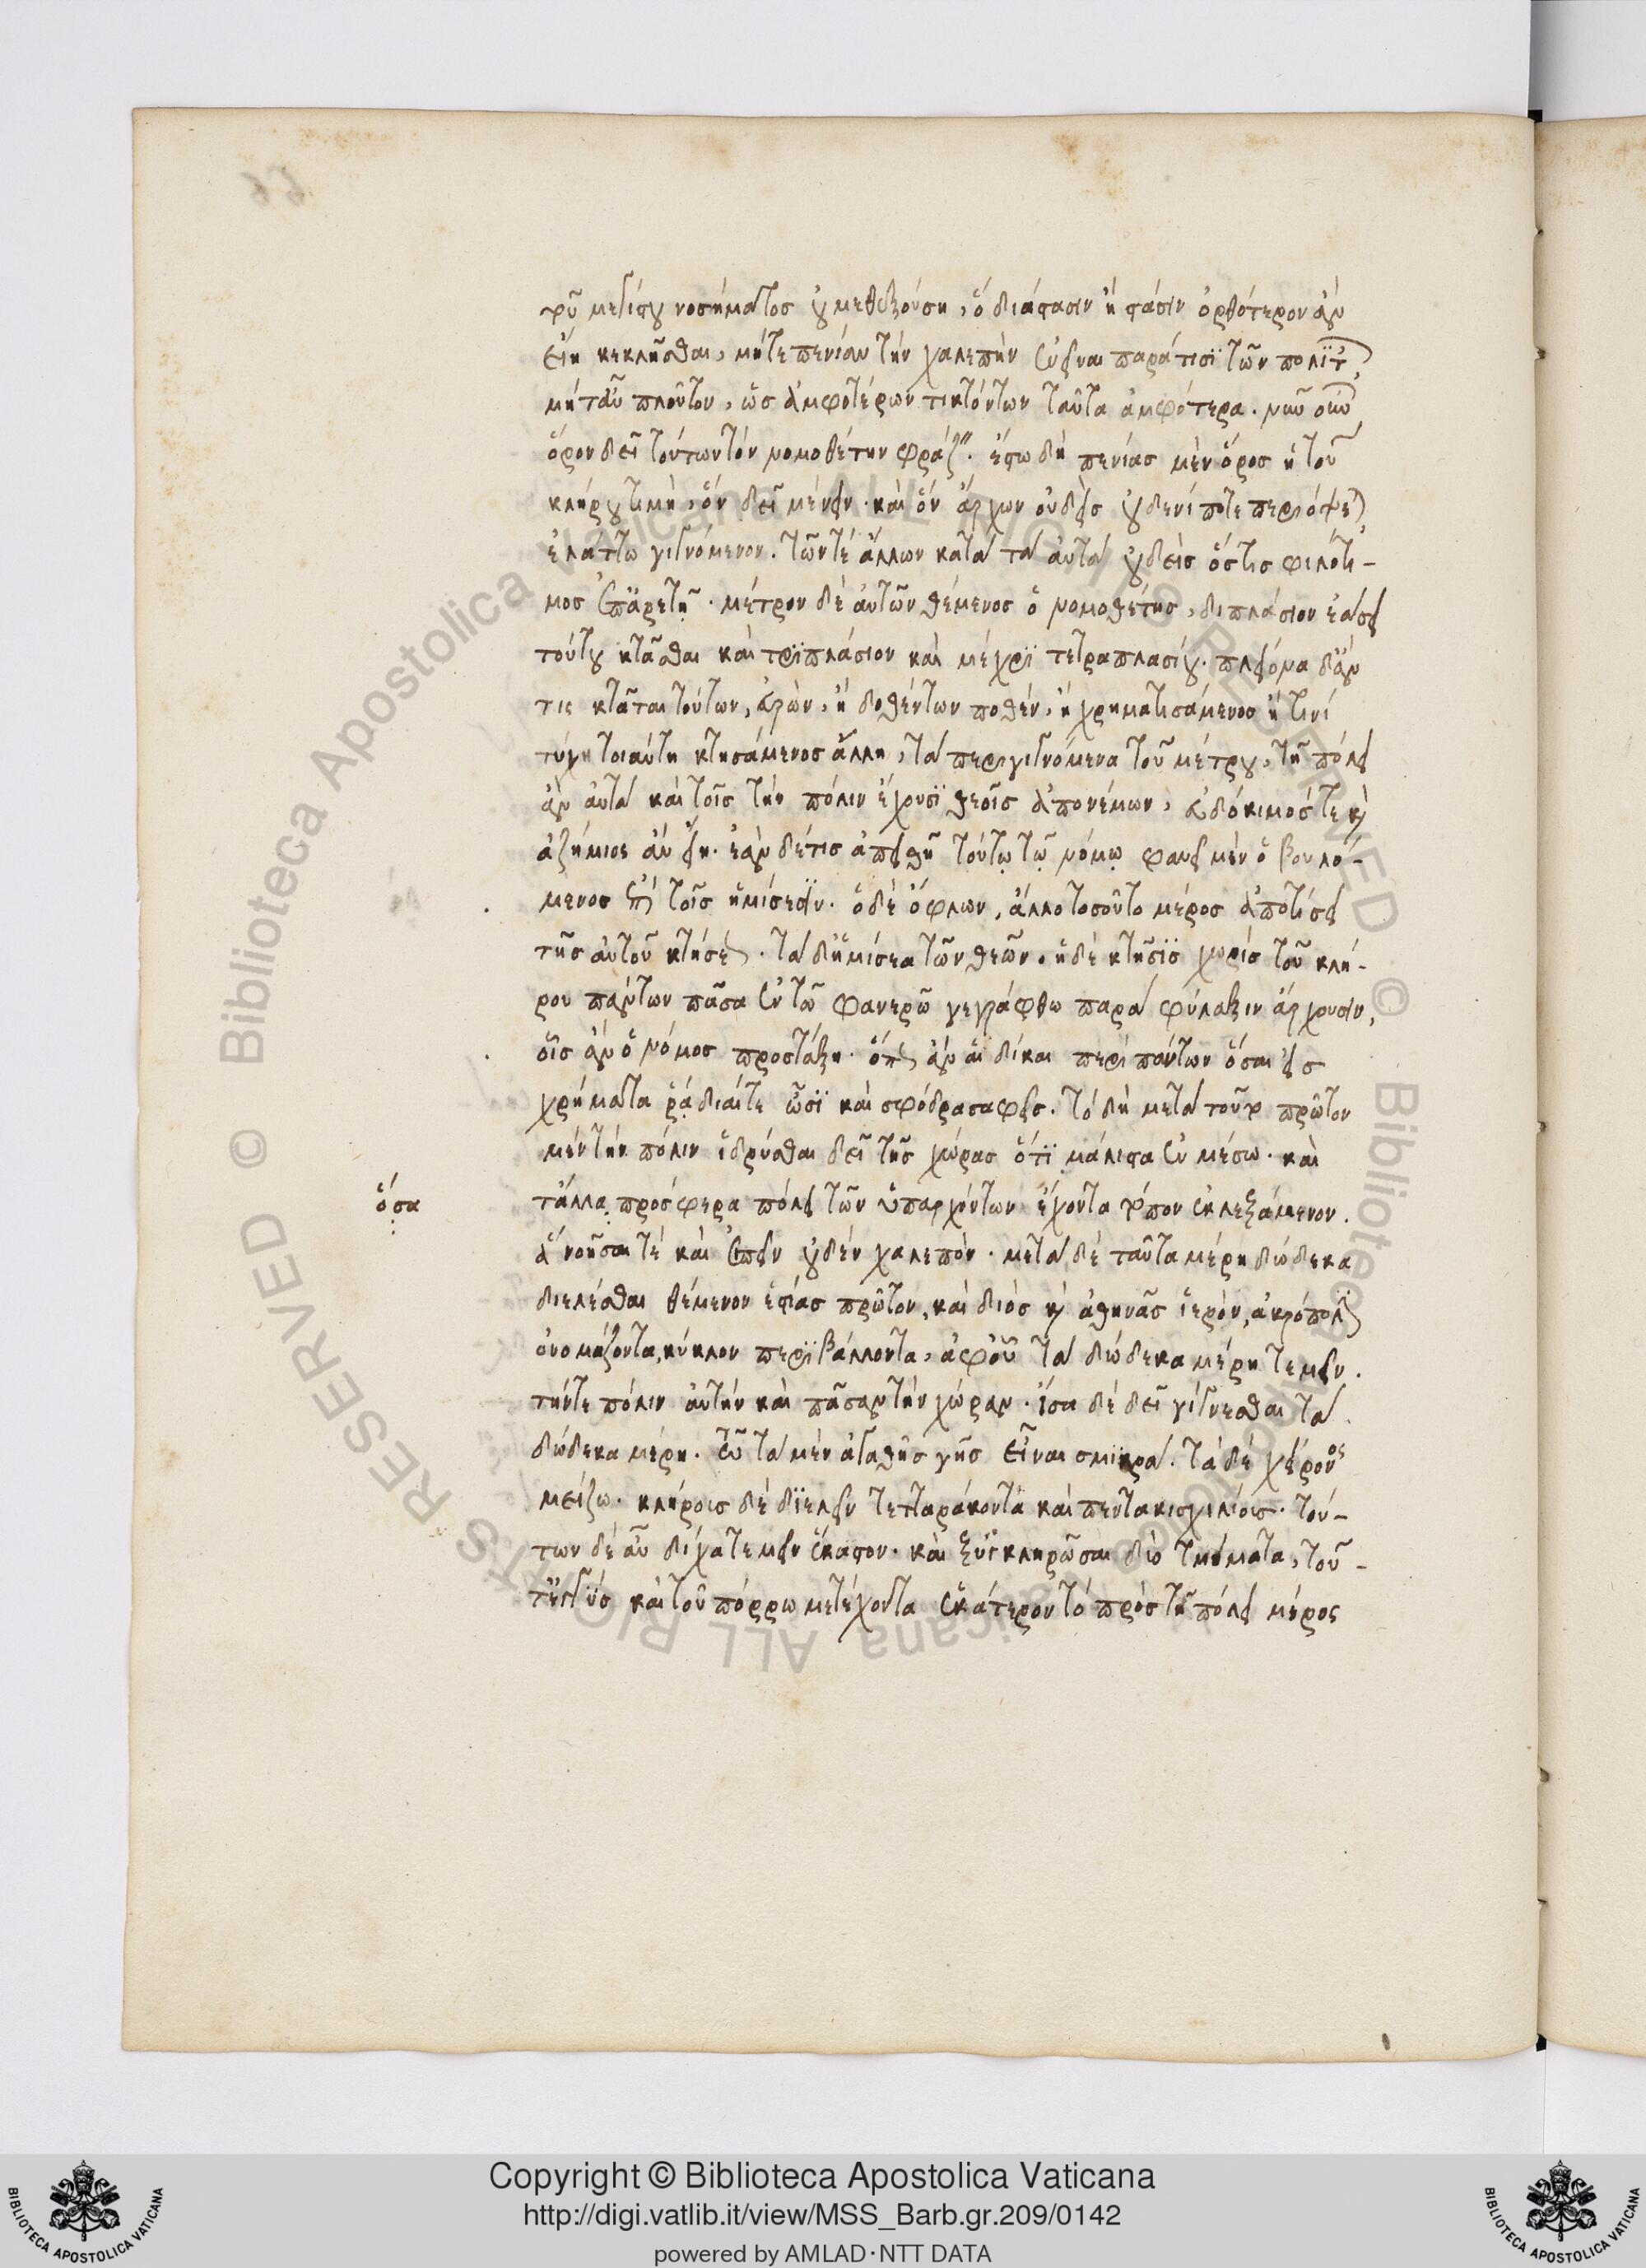 του μεγίστου νοσήματος οὐ μεθεξούσῃ, ὃ διάστασιν ἢ στάσιν ὀρθότερον ἂν
εἴη κεκλῆσθαι, μήτε πενίαν τὴν χαλεπὴν ἐνεῖναι παρά τισι τῶν πολιτῶν
μήτ' αὖ πλοῦτον, ὡς ἀμφοτέρων τικτόντων ταῦτα ἀμφότερα. νῦν οὖν
ὅρον δεῖ τούτων τὸν νομοθέτην φράζειν. ἔστω δὴ πενίας μὲν ὅρος ἡ τοῦ
κλήρου τιμὴ, ὃν δεῖ μένειν. καὶ ὃν ἄρχων οὐδεὶς οὐδενί ποτε περιόψεται
ἐλάττω γιγνόμενον. τῶν τὲ ἄλλων κατὰ τὰ αὐτὰ οὐδεὶς ὅστις φιλότι-
μος ἐπ' ἀρετῇ. μέτρον δὲ αὐτῶν θέμενος ὁ νομοθέτης, διπλάσιον ἐάσει
τούτου κτᾶσθαι καὶ τριπλάσιον καὶ μέχρι τετραπλασίου. πλείονα δ' ἄν
τις κτᾶται τούτων, εὑρὼν, ἢ δοθέντων ποθὲν, ἢ χρηματισάμενος ἤ τινι
τύχῃ τοιαύτῃ κτησάμενος ἄλλῃ, τὰ περιγιγνόμενα τοῦ μέτρου, τῇ πόλει
ἂν αὐτὰ καὶ τοῖς τὴν πόλιν ἔχουσι θεοῖς ἀπονέμων, εὐδόκιμός τε καὶ
ἀζήμιος ἂν εἴη. ἐὰν δέ τις ἀπειθῇ τούτῳ τῷ νόμῳ φανεῖ μὲν ὁ βουλό-
μενος ἐπὶ τοῖς ἡμίσεσιν. ὁ δὲ ὀφλων, ἄλλο τοσοῦτο μέρος ἀποτίσει
τῆς αὑτοῦ κτήσεως. τὰ δ' ἡμίσεα τῶν θεῶν. ἡ δὲ κτῆσις χωρὶς τοῦ κλή-
ρου πάντων πᾶσα ἐν τῷ φανερῷ γεγράφθω παρὰ φύλαξιν ἄρχουσιν,
οἷς ἂν ὁ νόμος προστάξῃ. ὅπως ἂν αἱ δίκαι περὶ πάντων ὅσαι εἰς
χρήματα ῥᾴδιαί τε ὦσι καὶ σφόδρα σαφεῖς. τὸ δὴ μετὰ τοῦτο πρῶτον
μὲν τὴν πόλιν ἱδρύσθαι δεῖ τῆς χώρας ὅτι μάλιστα ἐν μέσῳ. καὶ
ὅσα
τἄλλα πρόσφερα πόλει τῶν ὑπαρχόντων ἔχοντα τόπον ἐκλεξάμενον.
ἃ νοῆσαί τε καὶ εἰπεῖν οὐδὲν χαλεπόν. μετὰ δὲ ταῦτα μέρη δώδεκα
διελέσθαι θέμενον ἑστίας πρῶτον, καὶ διὸς καὶ ἀθηνᾶς ἱερὸν, ἀκρόπολιν
ὀνομάζοντα, κύκλον περιβάλλοντα, ἀφ' οὗ τὰ δώδεκα μέρη τεμεῖν.
τήν τε πόλιν αὐτὴν καὶ πᾶσαν τὴν χώραν. ἴσα δὲ δεῖ γίγνεσθαι τὰ
δώδεκα μέρη. τῷ τὰ μὲν ἀγαθῆς γῆς εἶναι σμικρὰ. τὰ δὲ χείρονος
μείζω. κλήροις δὲ διελεῖν τετταράκοντα καὶ πεντακισχιλίοις. τού-
των δὲ αὖ δίχα τεμεῖν ἕκαστον. καὶ ξυγκληρῶσαι δύο τμήματα, τοῦ-
τ' ἐγγὺς καὶ τοῦ πόρρω μετέχοντα ἑκάτερον τὸ πρὸς τῇ πόλει μέρος
Copyright © Biblioteca Apostolica Vaticana
http://digi.vatlib.it/view/MSS_Barb.gr.209/0142
powered by AMLAD·NTT DATA